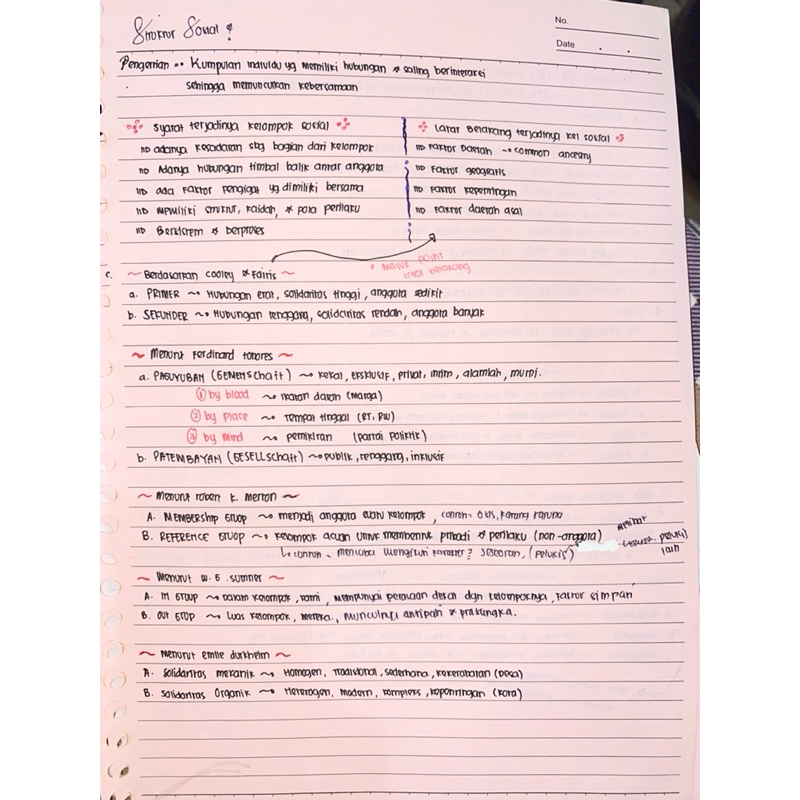 Struktur Sosial ?
No.
Date . .
Pengertian .. Kumpulan individu yg memiliki hubungan & saling berinteraksi
sehingga memunculkan kebersamaan
Syarat terjadinya kelompok sosial
adanya kesadaran sbg bagian dari kelompok
Adanya hubungan timbal balik antar anggota
ada faktor pengigat yg dimiliki bersama
memiliki struktur, kaidah, & pola perilaku
Bersistem & berproses
Latar Belakang terjadinya kel sosial
Faktor Daerah ~ common ancesry
Faktor geografis
Faktor kepentingan
Faktor daerah asal
* masuk point
latar belakang
~ Berdasarkan cooley & Fairis ~
a. PRIMER ~ Hubungan erat, solidaritas tinggi, anggota sedikit
b. SEKUNDER ~ Hubungan renggang, solidaritas rendah, anggota banyak
~ Menurut Ferdinand tonores ~
a. PAGUYUBAN (GEMEMSchaft) ~ kekal, EKSKLUSIF, privat, intim, alamiah, murni.
① by blood ~ ikatan darah (marga)
② by Place ~ Tempat tinggal (RT, RW)
③ by Mind ~ pemikiran (partai politik)
b. PATEMBAYAN (GESELLSchaft) ~ publik, renggang, inklusif
~ Menurut robert k. merton ~
A. MEMBERSHIP GRUOP ~ menjadi anggota suatu kelompok, contoh = OSIS, karang taruna
B. REFERENCE GRUOP ~ kelompok acuan untuk membentuk pribadi & perilaku (non-anggota)
melihat
pelukis
lain
contoh = mencoba mengikuti karakter² seseorang, (pelukis)
~ Menurut w. G. sumner ~
A. In GROUP ~ Dalam kelompok, kami, mempunyai perasaan dekat dgn kelompoknya, faktor simpati
B. OUT GROP ~ Luar kelompok, mereka., munculnya antipati & prasangka.
~ Menurut emile durkheim ~
A. Solidaritas mekanik ~ Homogen, Tradisional, sederhana, kekerabatan (Desa)
B. Solidaritas Organik ~ Heterogen, modern, kompleks, kepentingan (kota)